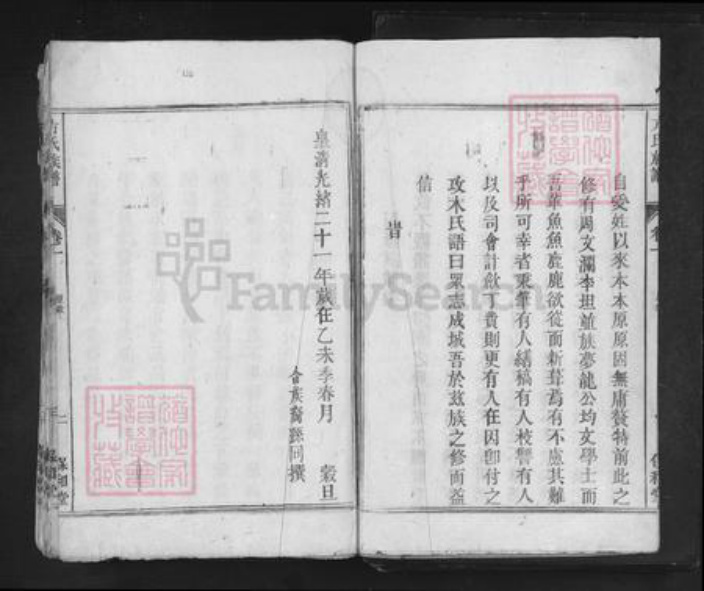 自受姓以來木本原原因無庸贅特前此之
修有周文瀾李坦並族夢龍公均文學士而
吾輩魚魚鹿鹿欲從而新葺焉有不慮其難
乎所可幸者秉筆有人繕稿有人校讐有人
以及司會計歛丁費則更有人在因卽付之
攻木氏語曰眾志成城吾於玆族之修而益
信
旹
皇清光緒二十一年歲在乙未季春月 穀旦
合族裔孫同撰
氏族譜
卷一
二
保和堂
FamilySearch